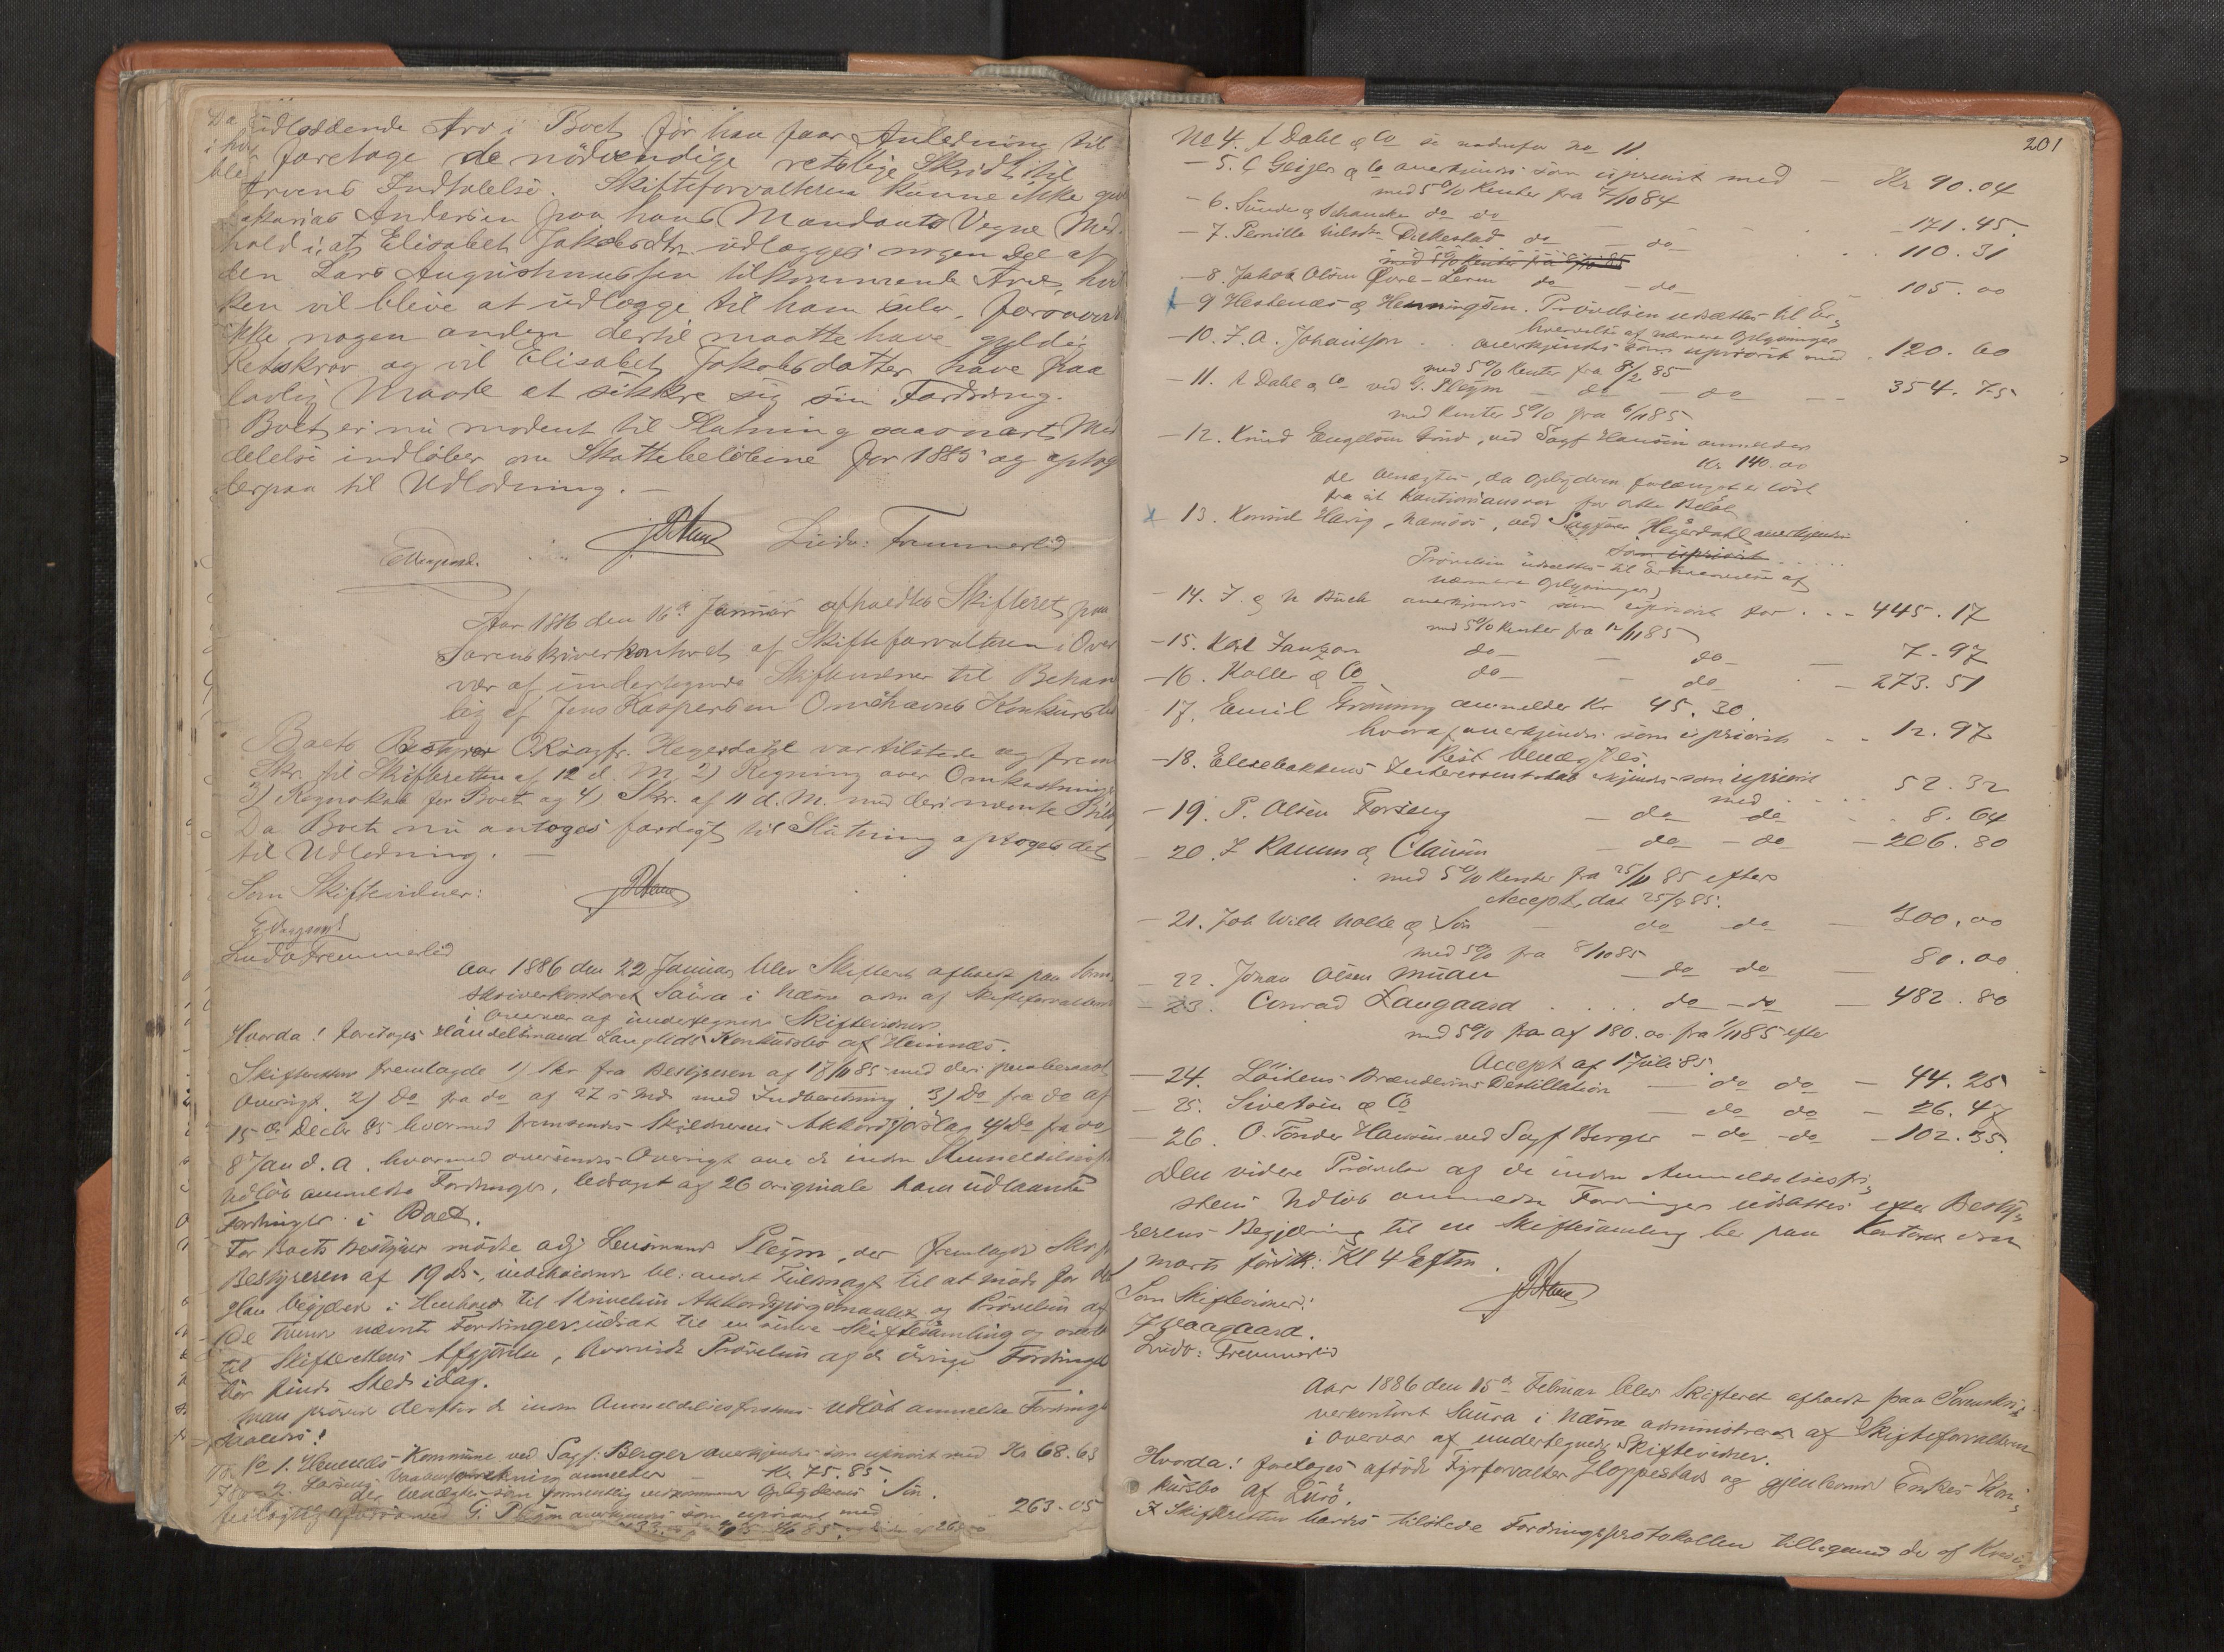 udloddende Arv i Boet før han faar Anledning til
foretage de nödvendige retslige Skridt til
Arvens Indtalelse. Skifteforvalteren kunne ikke
Andersen paa hans Mandants Vegne Med
hold i, at Elisabet Jakobsdtr. udlægges nogen Del af
den Lars Augustinussen tilkommende Arv,
ken vil blive at udlægge til ham selv, forsaavidt
ikke nogen anden dertil maatte have gyldig
Retskrav og vil Elisabet Jakobsdatter have paa
lovlig Maade at sikkre sig sin Fordring.
Boet er nu modent til Slutning saasnart Med
delelse indlöber om Skattebelöbene for 1885 og optog
derpaa til Udlodning. —
Ludv: Fremmerlid
Aar 1886 den 16de Januar afholdtes Skifteret paa
Sorenskriverkontoret af Skifteforvalteren i Over
vær af undertegnede Skiftevidner til Behan
lig af Jens Kaspersen Konkursbo
Boets Bestyrer Hegerdahl var tilstede og frem
Skr. til Skifteretten af 12 d. M. 2) Regning over Omkostninger
3) Regnskab for Boet og 4) Skr. af 11 d. M. med deri nævnte Bilag
Da Boet nu antoges færdigt til Slutning optoges det
til Udlodning. —
Som Skiftevidner:
Ludv Fremmerlid
Aar 1886 den 22 Januar blev Skifteret afholdt paa Soren
skriverkontoret Saura i Næsne adm af Skifteforvalteren
i Overvær af undertegnede Skiftevidner.
Hvorda! foretoges Handelsmand Langlids Konkursbo af Hemnæs.
Skifteretten fremlagde 1) Skr fra Bestyreren af 17/11 85 med deri paaberaabt
Oversigt. 2) Do fra do af 27 s. Md. med Indberetning. 3) Do fra do af
15de Decbr 85 hvormed fremsendes Skyldnerens Akkordforslag 4) Do fra do
8 Jan d. A. hvormed oversendes Oversigt over de inden Anmeldelsesfr
Udløb anmeldte Fordringer, ledsaget af 26 originale ham udlaante
Fordringer i Boet.
For Boets Bestyrer mödte adj Lensmand Pleym, der fremlagde Skr fr
Bestyreren af 19 ds., indeholdende bl: andet Fuldmagt til at møde for
Han begjærede i Henhold til Skrivelsen Akkordspørgsmaalet og Prövelsen af
de deri nævnte Fordringer udsat til en senere Skiftesamling og overlod
til Skifterettens Afgjørelse, hvorvidt Prövelsen af de övrige Fordringer
bör finde Sted idag.
Man prövede derefter de inden Anmeldelsesfristens Udløb anmeldte Fordringer
saaledes!
No 1. Hemnæs Kommune ved Sagf: Berger anerkjendes som uprivit med Kr 68.63
2. anmelder — Kr. 75.85.
der benægtes som formentlig vedkommende Opbyderens Sön.
G. Pleym anerkjendes som uprivit med 263.05
201
No 4. A Dahl & Co se nedenfor No 11
— 5. C Geijer & Co anerkjendes som uprivit med — Kr 90.04
med 5% Renter fra 7/10 84
— 6. Sunde & Schancke do do — 171.45.
— 7. Pernille Dirkestad do — do 110.31
med 5% Renter fra 85
— 8. Jakob Olsen Övre-Leren do — do — 105.00
— 9 Hestenæs & Henningsen. Prövelsen udsættes til Er-
hvervelse af nærmere Oplysninger
— 10. F. A. Johansson . . anerkjendes som uprivit med . 120.60
med 5% Renter fra 8/2 85
— 11. A Dahl & Co ved G. Pleym — do — do — 354.75
med Renter 5% fra 6/11 85
— 12. Knud Engelsen ved Sagf Hansen anmeldes
Kr. 140.00
der benægtes, da Opbyderen forlængst er löst
fra sit Kautionsansvar for dette Belöb
— 13. Konrad Havig, Namsos, ved Sagförer Hegerdahl anerkjendes
som uprivit
Prövelsen udsættes til Erhvervelse af
nærmere Oplysninger)
— 14. J. & N Buck anerkjendes som uprivit for . . — 445.17
med 5% Renter fra 12/11 85
— 15. Karl Janzon do — do — 7.97
— 16. Koller & Co do — do — 273.51
17. Emil Gröning anmelder Kr 45.30.
hvoraf anerkjendes som uprivit . . 12.97
Rest benægtes.
— 18. Elesbakkens Interessentskab erkjendes som uprivit
med . . . 52.32
— 19. P. Olsen Forsberg — do do . . 8.64
— 20. J Ramm & Clausen — do — do — 206.80
med 5% Renter fra 25/11 85 efter
Accept, dat 25/8 85.
— 21. Joh Wilh Holle & Sön — do do — 300.00
med 5% fra 8/10 85
— 22. Johan Olsen Muan — do do — 80.00
— 23. Conrad Langaard . . . . do — do — 482.80
med 5% fra af 180.00 fra 1/11 85 efter
Accept af 1 Juli 85.
— 24. Löitens Brænderies Destillation — do do — 44.25
— 25. Sivertsen & Co — do do — 26.47
— 26. O. Tönder Hansen ved Sagf Berger — do — do — 102.35.
Den videre Prövelse af de inden Anmeldelsesfri-
stens Udløb anmeldte Fordringer udsættes efter Besty-
rerens Begjæring til en Skiftesamling her paa Kontoret den
1 Marts förstk: Kl 4 Eftm.
Som Skiftevidner:
Vaagaard.
Ludv: Fremmerlid
Aar 1886 den 15de Februar blev Skifteret afholdt paa Sorenskri-
verkontoret Saura i Næsne administreret af Skifteforvalteren
i Overvær af undertegnede Skiftevidner.
Hvorda! foretoges afdöde Fyrforvalter Hoppestad og gjenlevende Enkes Kon-
kursbo af Lurö.
I Skifteretten havdes tilstede Fordringsprotokollen tilligemed de af